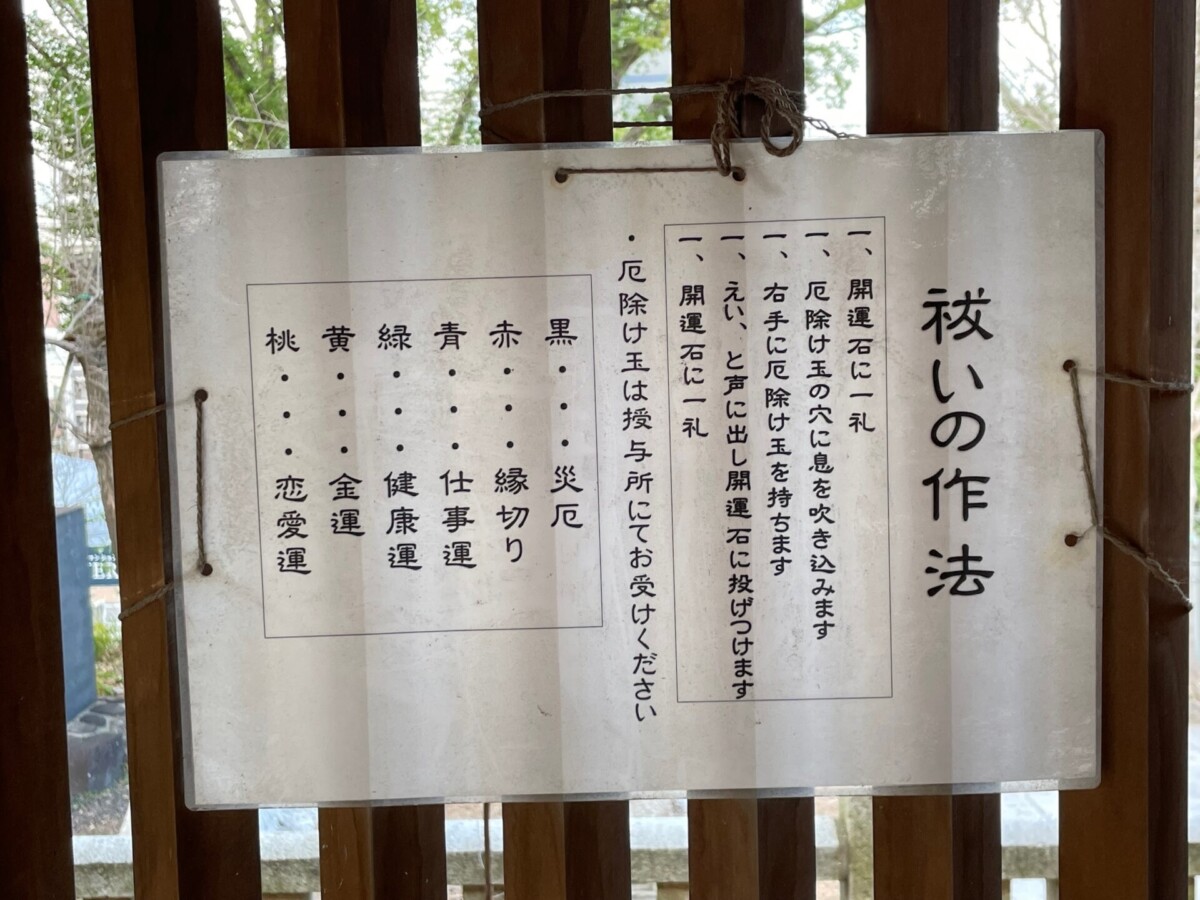 祓いの作法
一、開運石に一礼
一、厄除け玉の穴に息を吹き込みます
一、右手に厄除け玉を持ちます
一、えい、と声に出し開運石に投げつけます
一、開運石に一礼
・厄除け玉は授与所にてお受けください
黒・・・災厄
赤・・・縁切り
青・・・仕事運
緑・・・健康運
黄・・・金運
桃・・・恋愛運